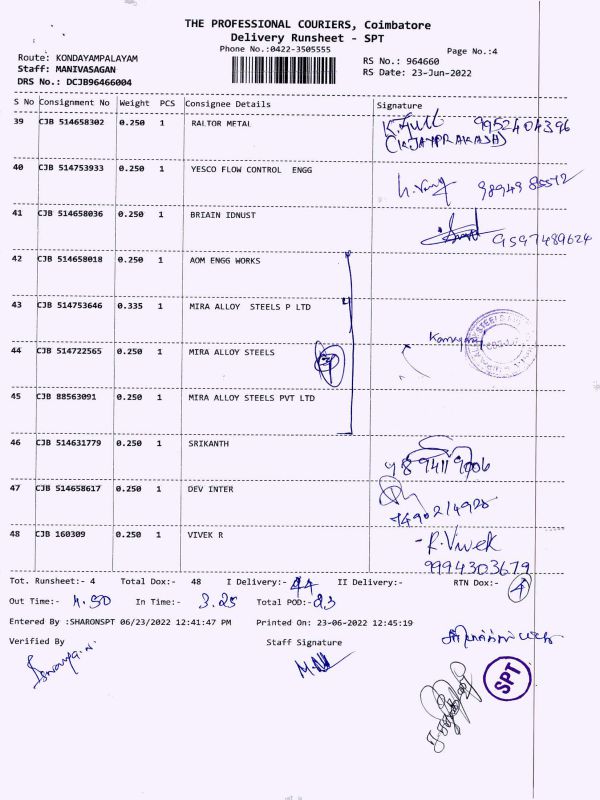 THE PROFESSIONAL COURIERS, Coimbatore
Delivery Runsheet - SPT
Phone No.:0422-3505555
Page No.:4
Route: KONDAYAMPALAYAM
RS No.: 964660
Staff: MANIVASAGAN
RS Date: 23-Jun-2022
DRS No.: DCJB96466004
S No Consignment No Weight PCS Consignee Details Signature
39 CJB 514658302 0.250 1 RALTOR METAL 9952404396
(K.JAYAPRAKASH)
40 CJB 514753933 0.250 1 YESCO FLOW CONTROL ENGG
41 CJB 514658036 0.250 1 BRIAIN IDNUST
9597489624
42 CJB 514658018 0.250 1 AOM ENGG WORKS
43 CJB 514753646 0.335 1 MIRA ALLOY STEELS P LTD
44 CJB 514722565 0.250 1 MIRA ALLOY STEELS
45 CJB 88563091 0.250 1 MIRA ALLOY STEELS PVT LTD
46 CJB 514631779 0.250 1 SRIKANTH
47 CJB 514658617 0.250 1 DEV INTER
48 CJB 160309 0.250 1 VIVEK R - R. Vivek
9994303679
Tot. Runsheet:- 4 Total Dox:- 48 I Delivery:- 44 II Delivery:- RTN Dox:- 4
Out Time:- In Time:- 3.25 Total POD:- 23
Entered By :SHARONSPT 06/23/2022 12:41:47 PM Printed On: 23-06-2022 12:45:19
Verified By Staff Signature
SPT